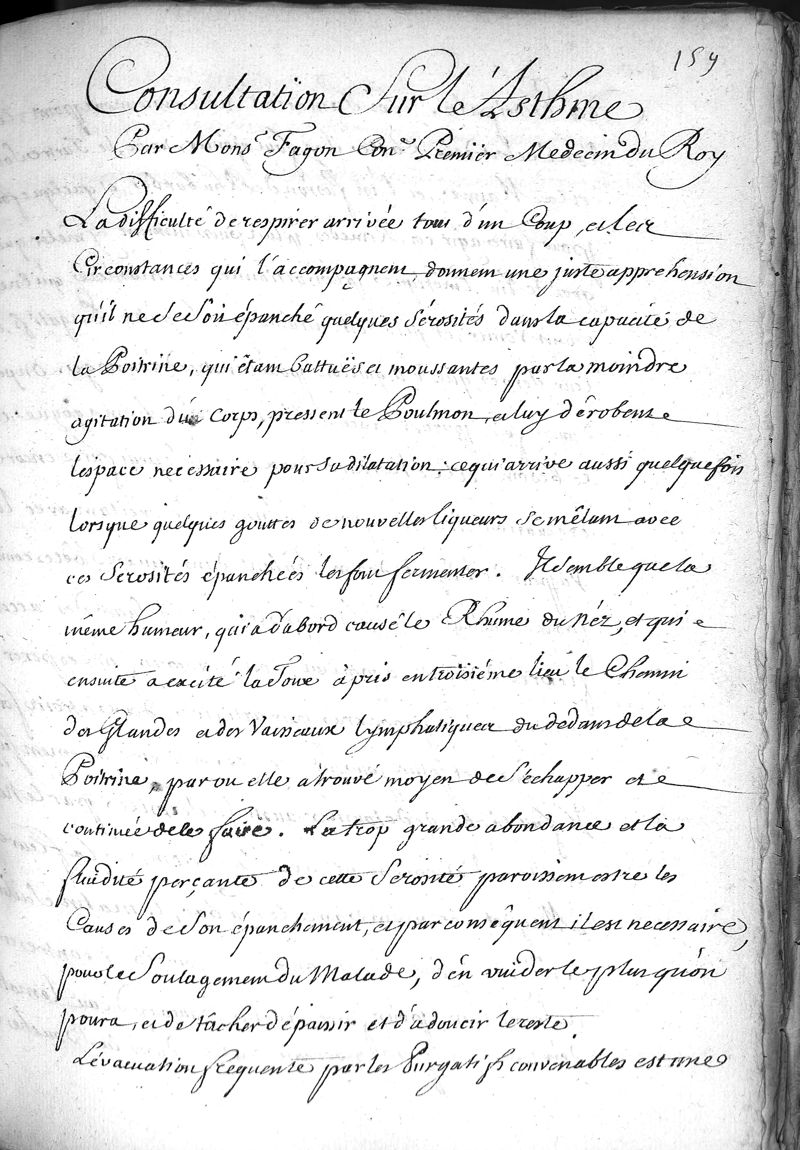 159
Consultation Sur le'Asthme
Par Mons.r Fagon Con.r Premiér Medecin du Roy
La difficulté de respirer arrivée tout d'un Coup, et les
Circonstances qui l'accompagnent donnent une juste apprehension
qu'il ne se soit épanché quelques sérosités dans la capacité de
la Poitrine, qui étant battuës et moussantes par la moindre
agitation du corps, pressent le Poulmon, et luy dérobent
lespace necessaire pour sa dilatation: ce qui arrive aussi quelque fois
lorsque quelques gouttes de nouvelles liqueurs se mêlant avec
ces Serosités épanchées les font fermenter. Il semble que la
même humeur, qui a d'abord causé le Rhume du néz, et qui
ensuite a excité la Toux à pris en troisiéme lieu le Chemin
des Glandes et des Vaisseaux lymphatiques du dedans de la
Poitrine, par ou elle a trouvé moyen de s'échapper et
continüe de le faire. La trop grande abondance et la
fluidité perçante de cette Serosité paroissent estre les
Causes de son épanchement, et par consêquent il est necessaire,
pour le Soulagement du Malade, d'én vuider le plus qu'on
poura, et de tâcher d'épaissir et d'adoucir le reste.
L'évacuation frequente par les Purgatifs convenables est une